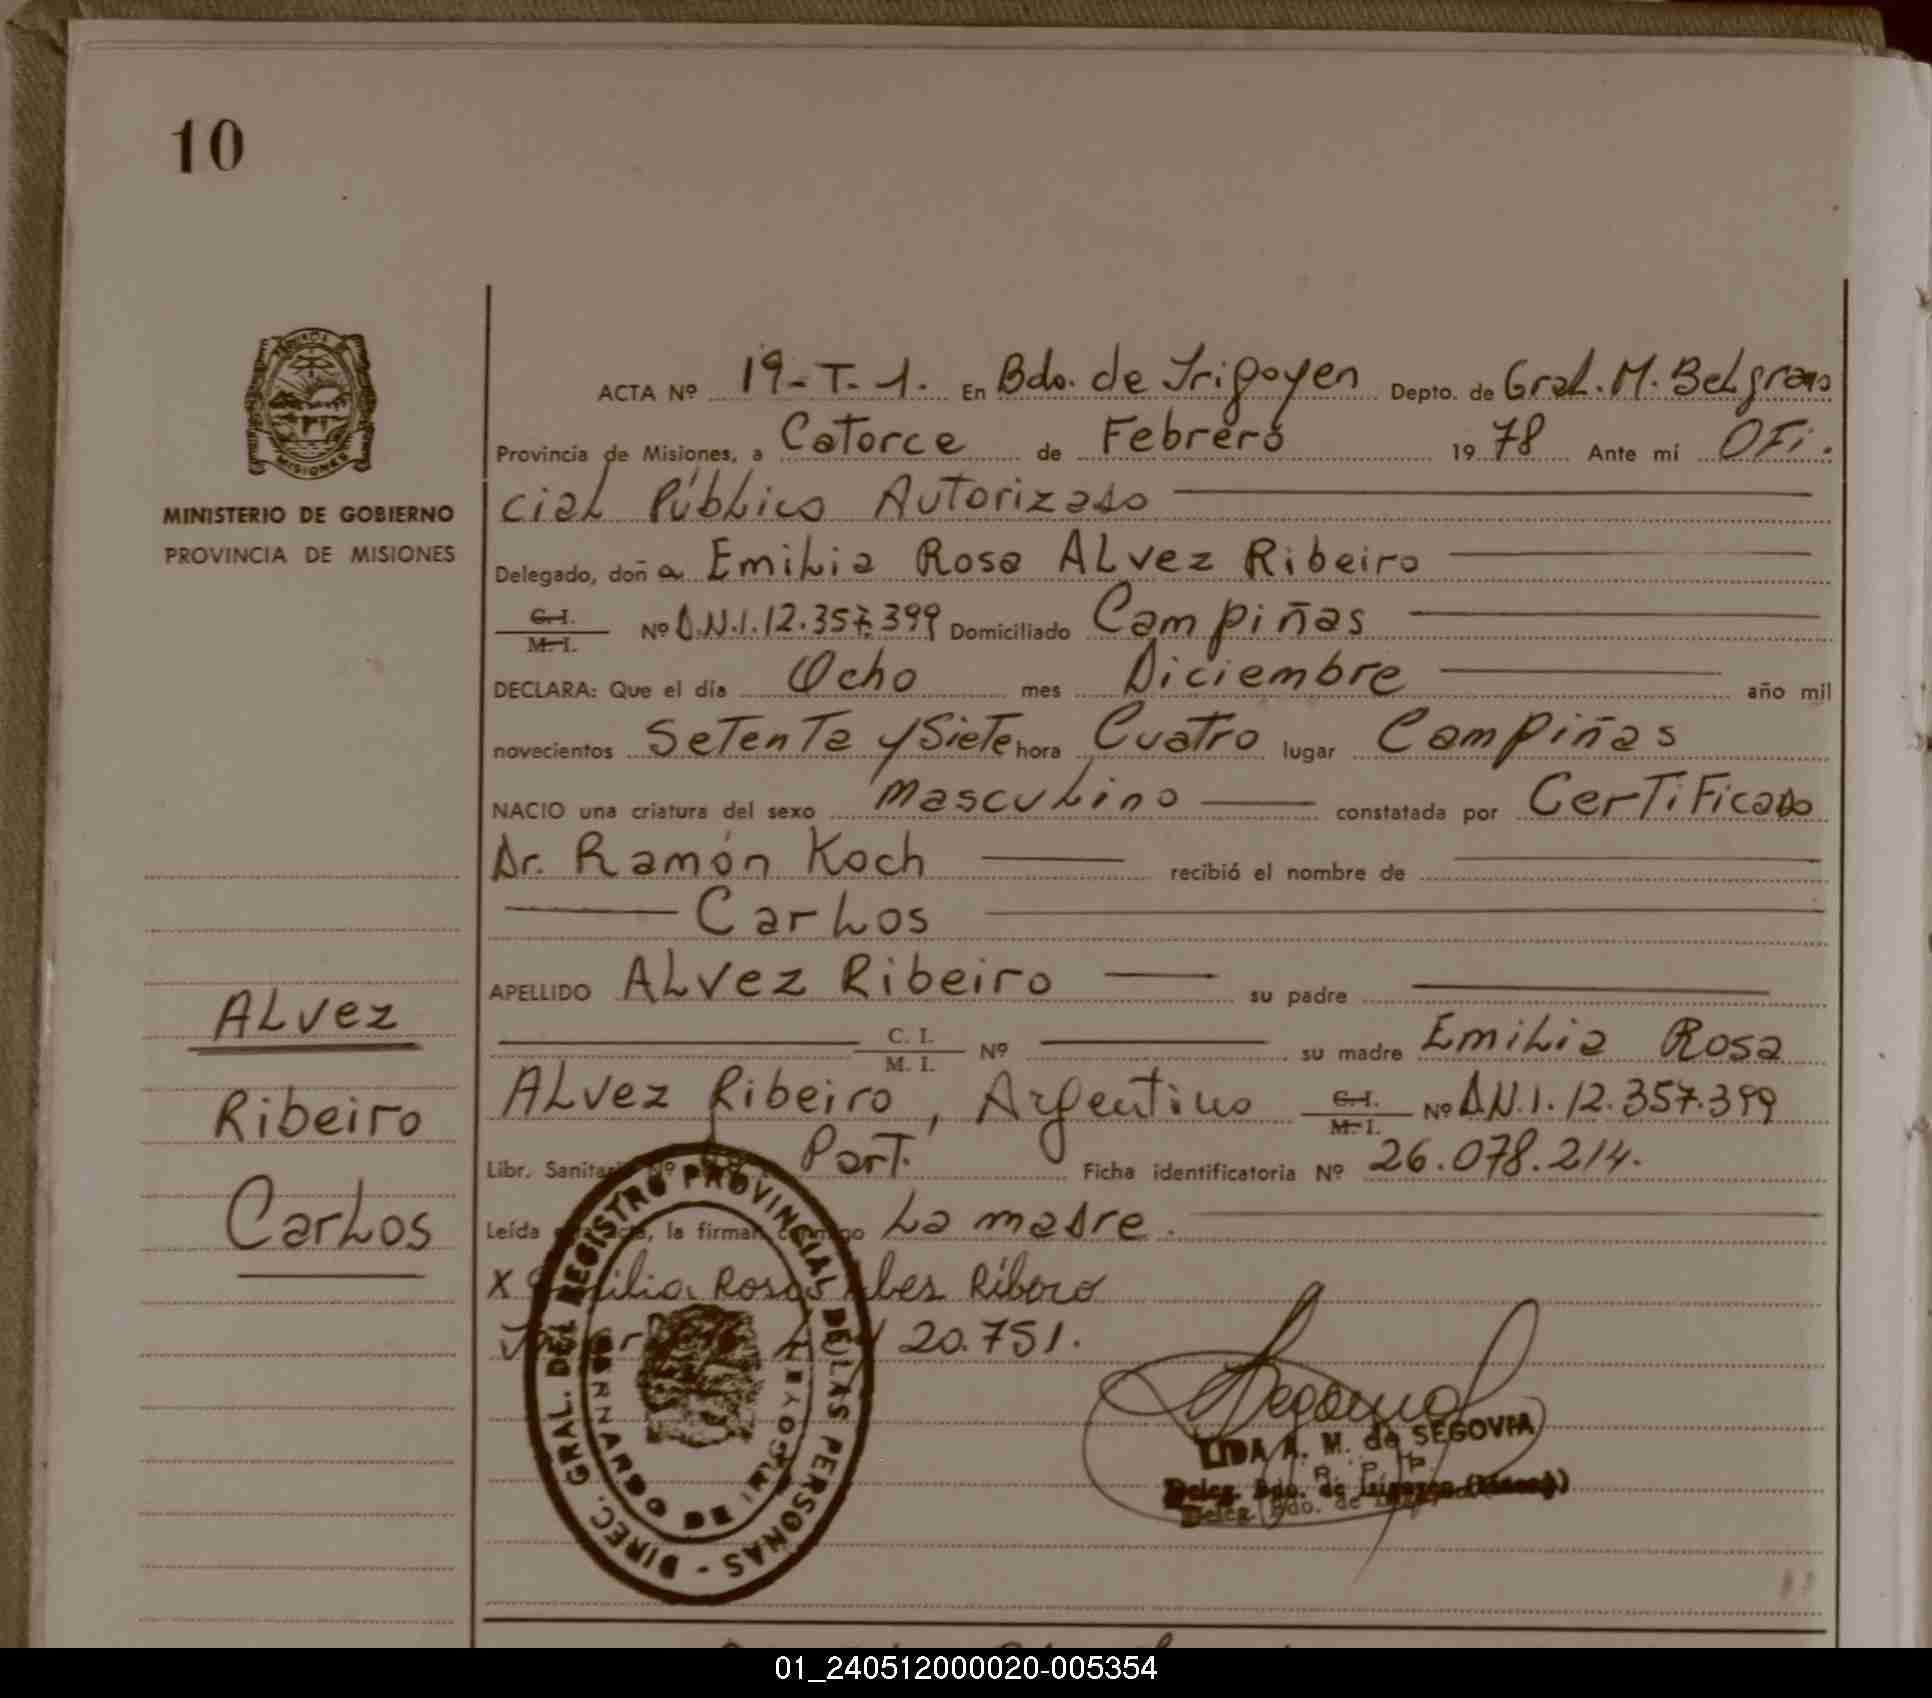 10
MINISTERIO DE GOBIERNO
PROVINCIA DE MISIONES
MISIONES
ACTA Nº 19-T-1. En Bdo. de Irigoyen Depto. de Gral. M. Belgrano
Provincia de Misiones, a Catorce de Febrero 1978 Ante mí Ofi.
cial Público Autorizado
Delegado, doña Emilia Rosa Alvez Ribeiro
C. I. M. I. Nº D.N.I. 12.357.399 Domiciliado Campiñas
DECLARA: Que el día Ocho mes Diciembre año mil
novecientos Setenta y Siete hora Cuatro lugar Campiñas
NACIO una criatura del sexo masculino constatada por Certificado
Dr. Ramón Koch recibió el nombre de
Carlos
APELLIDO Alvez Ribeiro su padre
C. I. M. I. Nº su madre Emilia Rosa
Alvez Ribeiro, Argentino C. I. M. I. Nº D.N.I. 12.357.399
Libr. Sanitaria Nº Part. Ficha identificatoria Nº 26.078.214.
Leída acta, la firman conmigo La madre.
X Emilia Rosa Albes Ribero
20.751.
Alvez
Ribeiro
Carlos
DIREC. GRAL. DEL REGISTRO PROVINCIAL DE LAS PERSONAS -
BERNARDO DE IRIGOYEN
LIDA A. M. de SEGOVIA
R. P. P.
Deleg. Bdo. de Irigoyen
Deleg. Bdo. de
01_240512000020-005354